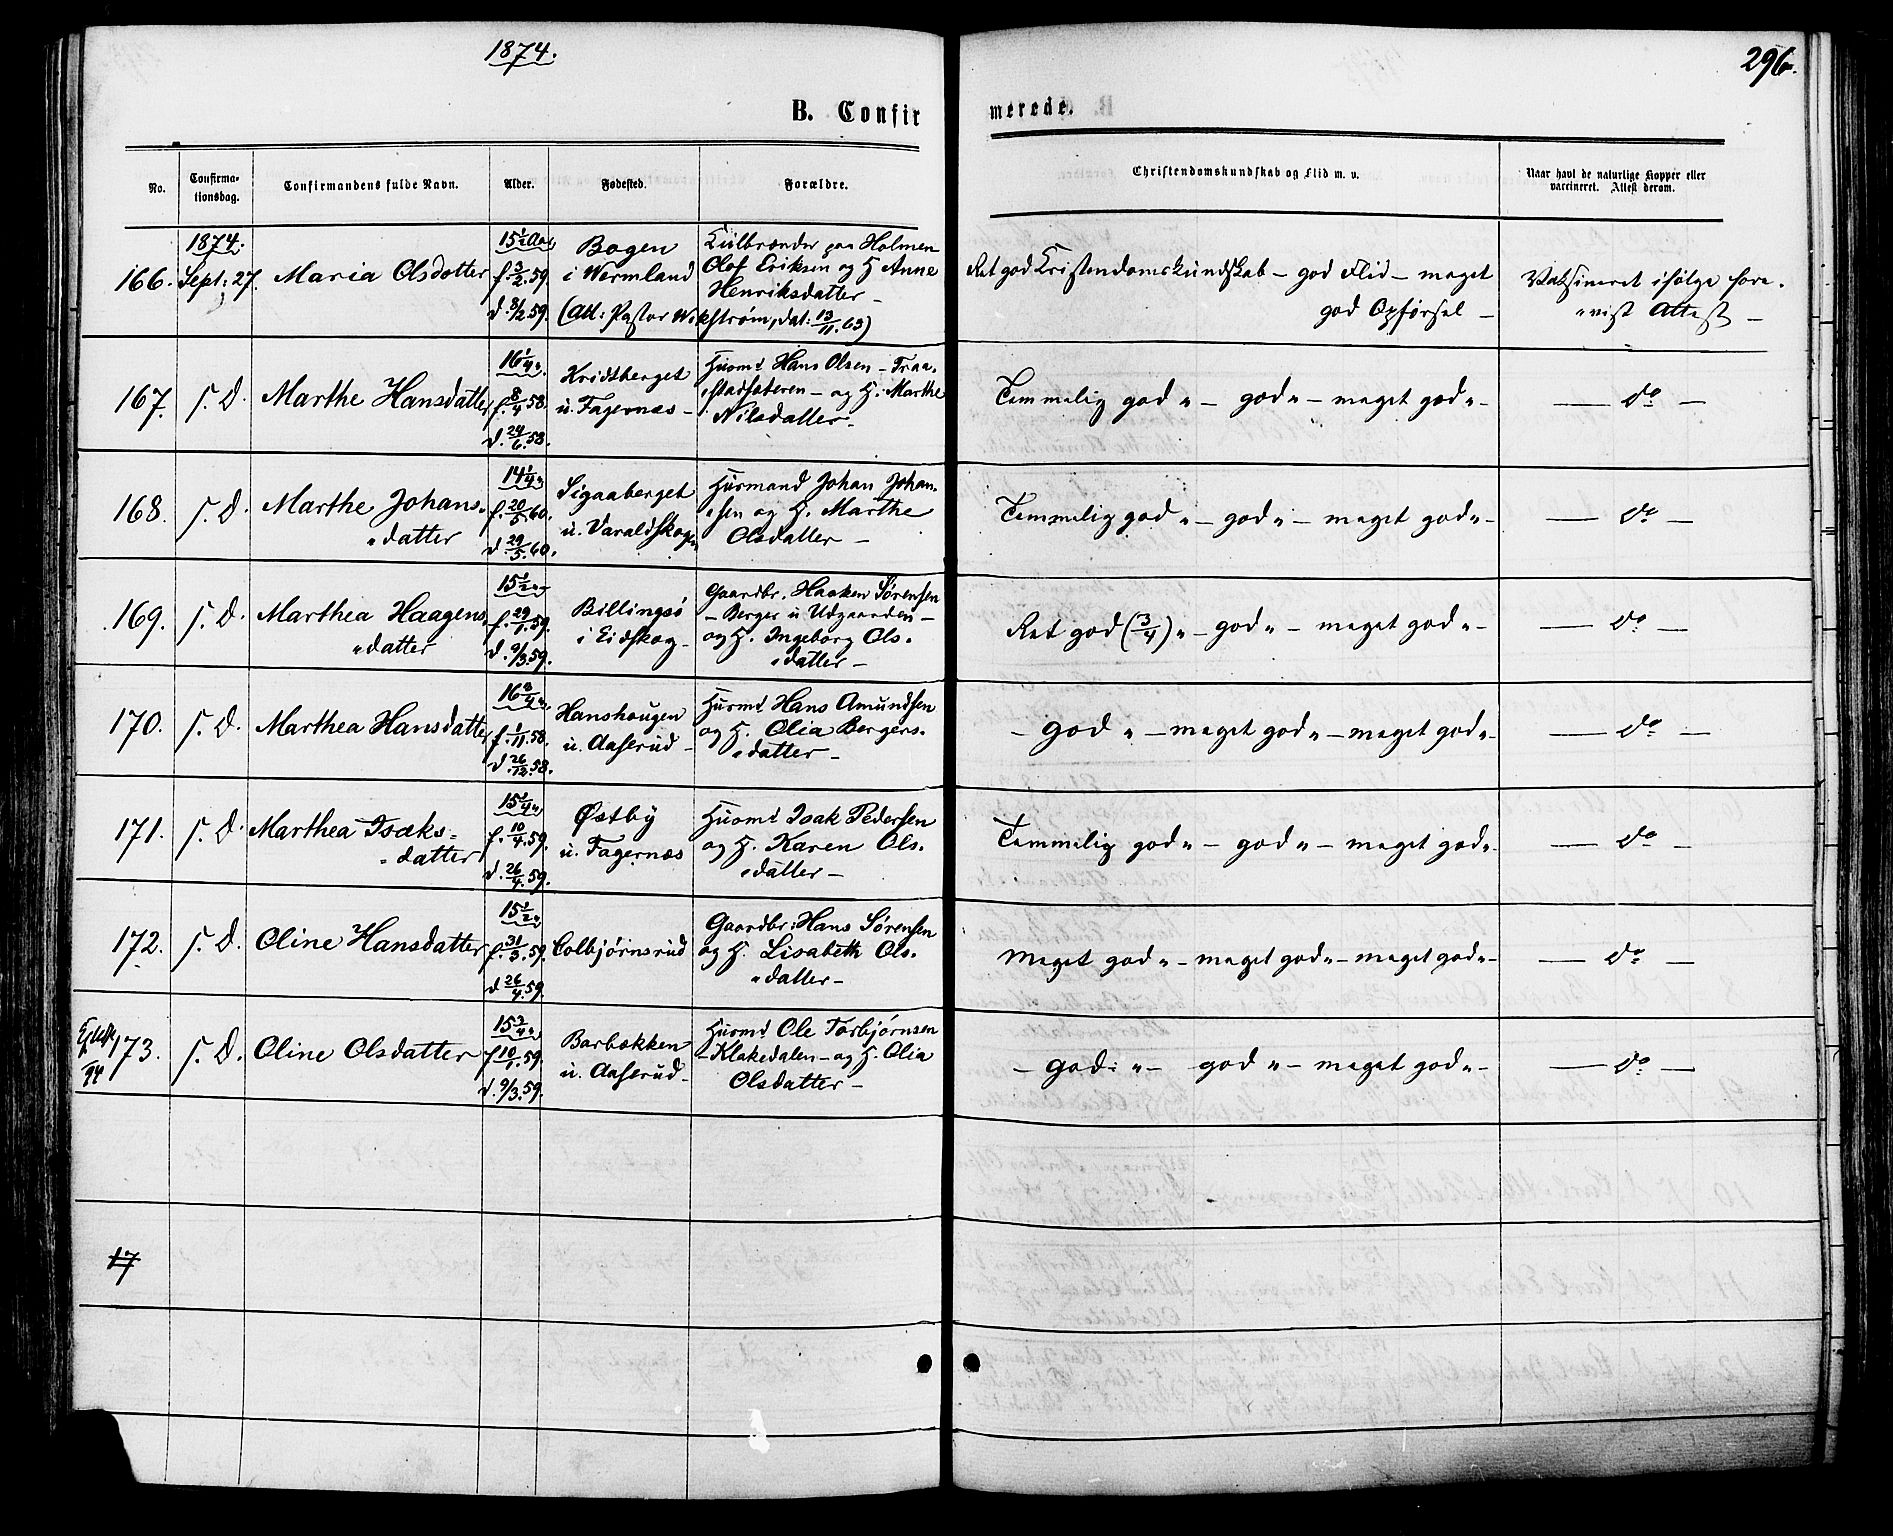 1874.
296.
B. Confirmerede.
No.
Confirma-
tionsdag.
Confirmandens fulde Navn.
Alder.
Fødested.
Forældre.
Christendomskundskab og Flid m. v.
Naar havt de naturlige Kopper eller
vaccineret. Attest derom.
1874.
166. Sept: 27. Maria Olsdotter
15½ Aar
f. 3/2.59.
d. 8/2.59.
Bogen
i Wermland
(Att: Pastor Wikstrøm, dat: 13/11.63)
Kulbrænder paa Holmen
Olof Eriksen og H Anne
Henriksdatter –
Ret god Kristendomskundskab – god Flid – meget
god Opførsel –
Vaksineret ifølge fore-
"vist Attest –
167. S. D. Marthe Hansdatter
16¼ "
f. 8/4 58.
d. 24/6.58.
Kridtberget
u. Fagernæs –
Husmd Hans Olsen – Traa-
stadsæteren – og H. Marthe
Nilsdatter –
Temmelig god " – god " – meget god " –
— do —
168. S. D. Marthe Johans-
"datter
14¼ "
f. 20/5.60.
d. 29/5.60.
Sigaaberget
u. Varaldskogen
Husmand Johan Johan-
"sen og H. Marthe
Olsdatter –
Temmelig god " – god " – meget god " –
— do —
169. S. D. Marthea Haagens-
"datter
15½ "
f. 29/1.59.
d. 9/3.59.
Billingsö
i Eidskog –
Gaardbr. Haaken Sørensen
– Berger u Udgaarden –
og H. Ingeborg Ols-
"datter –
Ret god (3/4) " – god " – meget god " –
— do —
170. S. D. Marthea Hansdatter
16¾ "
f. 1/11.58.
d. 26/12.58.
Hanshaugen
u. Aaserud –
Husmd Hans Amundsen
og H. Olia Bergers-
"datter –
– god " – meget god " – meget god " –
— do —
171. S. D. Marthea Isaks-
"datter
15¼ "
f. 10/4.59.
d. 26/4.59.
Østby
u. Fagernæs
Husmd Isak Pedersen
og H. Karen Ols-
"datter –
Temmelig god " – god " – meget god " –
— do —
172. S. D. Oline Hansdatter
15½ "
f. 31/3.59.
d 26/4.59.
Colbjørnsrud
Gaardbr: Hans Sørensen
og H. Lisabeth Ols-
"datter –
Meget god " – meget god " – meget god " –
— do —
173. S. D. Oline Olsdatter
15¾ "
f 10/1.59.
d. 9/3.59.
Barbakken
u. Aaserud –
Husmd Ole Torbjørnsen
– Klakedalen – og H. Olia
Olsdatter –
– god: " – god " – meget god " –
— do —
17